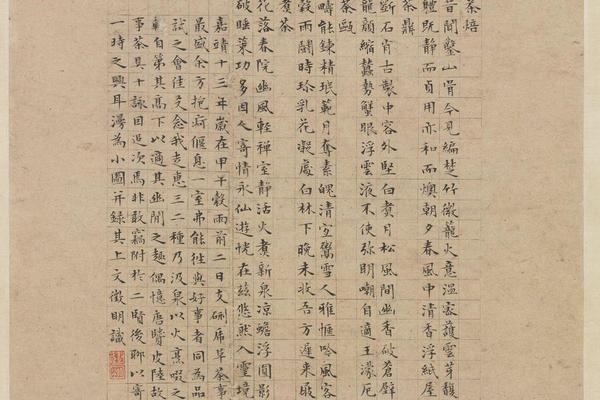 茶焙
昔聞鑿山骨今見編楚竹微籠火意溫密護雲芽馥
體既靜而貞用亦和而燠朝夕春風中清香浮紙屋
茶鼎
斫石肖古製中容外堅白煮月松風間幽香破蒼壁
龍顏縮蠢勢蟹眼浮雲液不使弥明嘲自適王濛厄
茶甌
疇能鍊精珉範月奪素魄清宜鬻雪人雅愜吟風客
穀雨鬬時珍乳花凝處白林下晚未收吾方遲來屐
煮茶
花落春院幽風輕禪室靜活火煮新泉涼蟾浮圓影
破睡策功多因人寄情永仙遊恍在茲悠然入靈境
嘉靖十三年歲在甲午穀雨前二日支硎虎阜茶事
最盛余方抱疴偃息一室弗能往與好事者同為品
試之會佳友念我走惠三二種乃汲泉以火烹啜之
輒自第其高下以適其幽閒之趣偶憶唐賢皮陸故
事茶具十詠因追次焉非敢竊附於二賢後聊以寄
一時之興耳漫為小圖并錄其上文徵明識